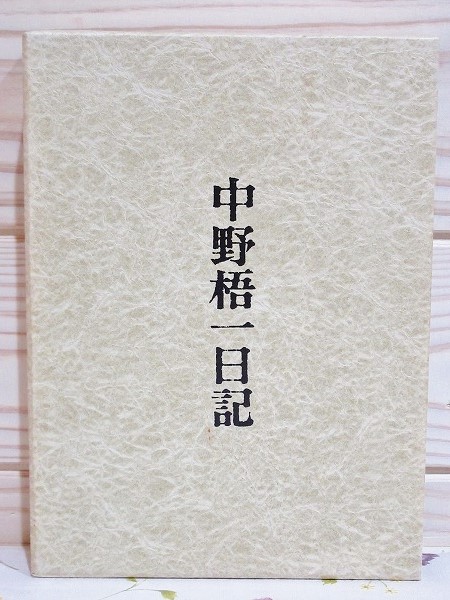 中野梧一日記